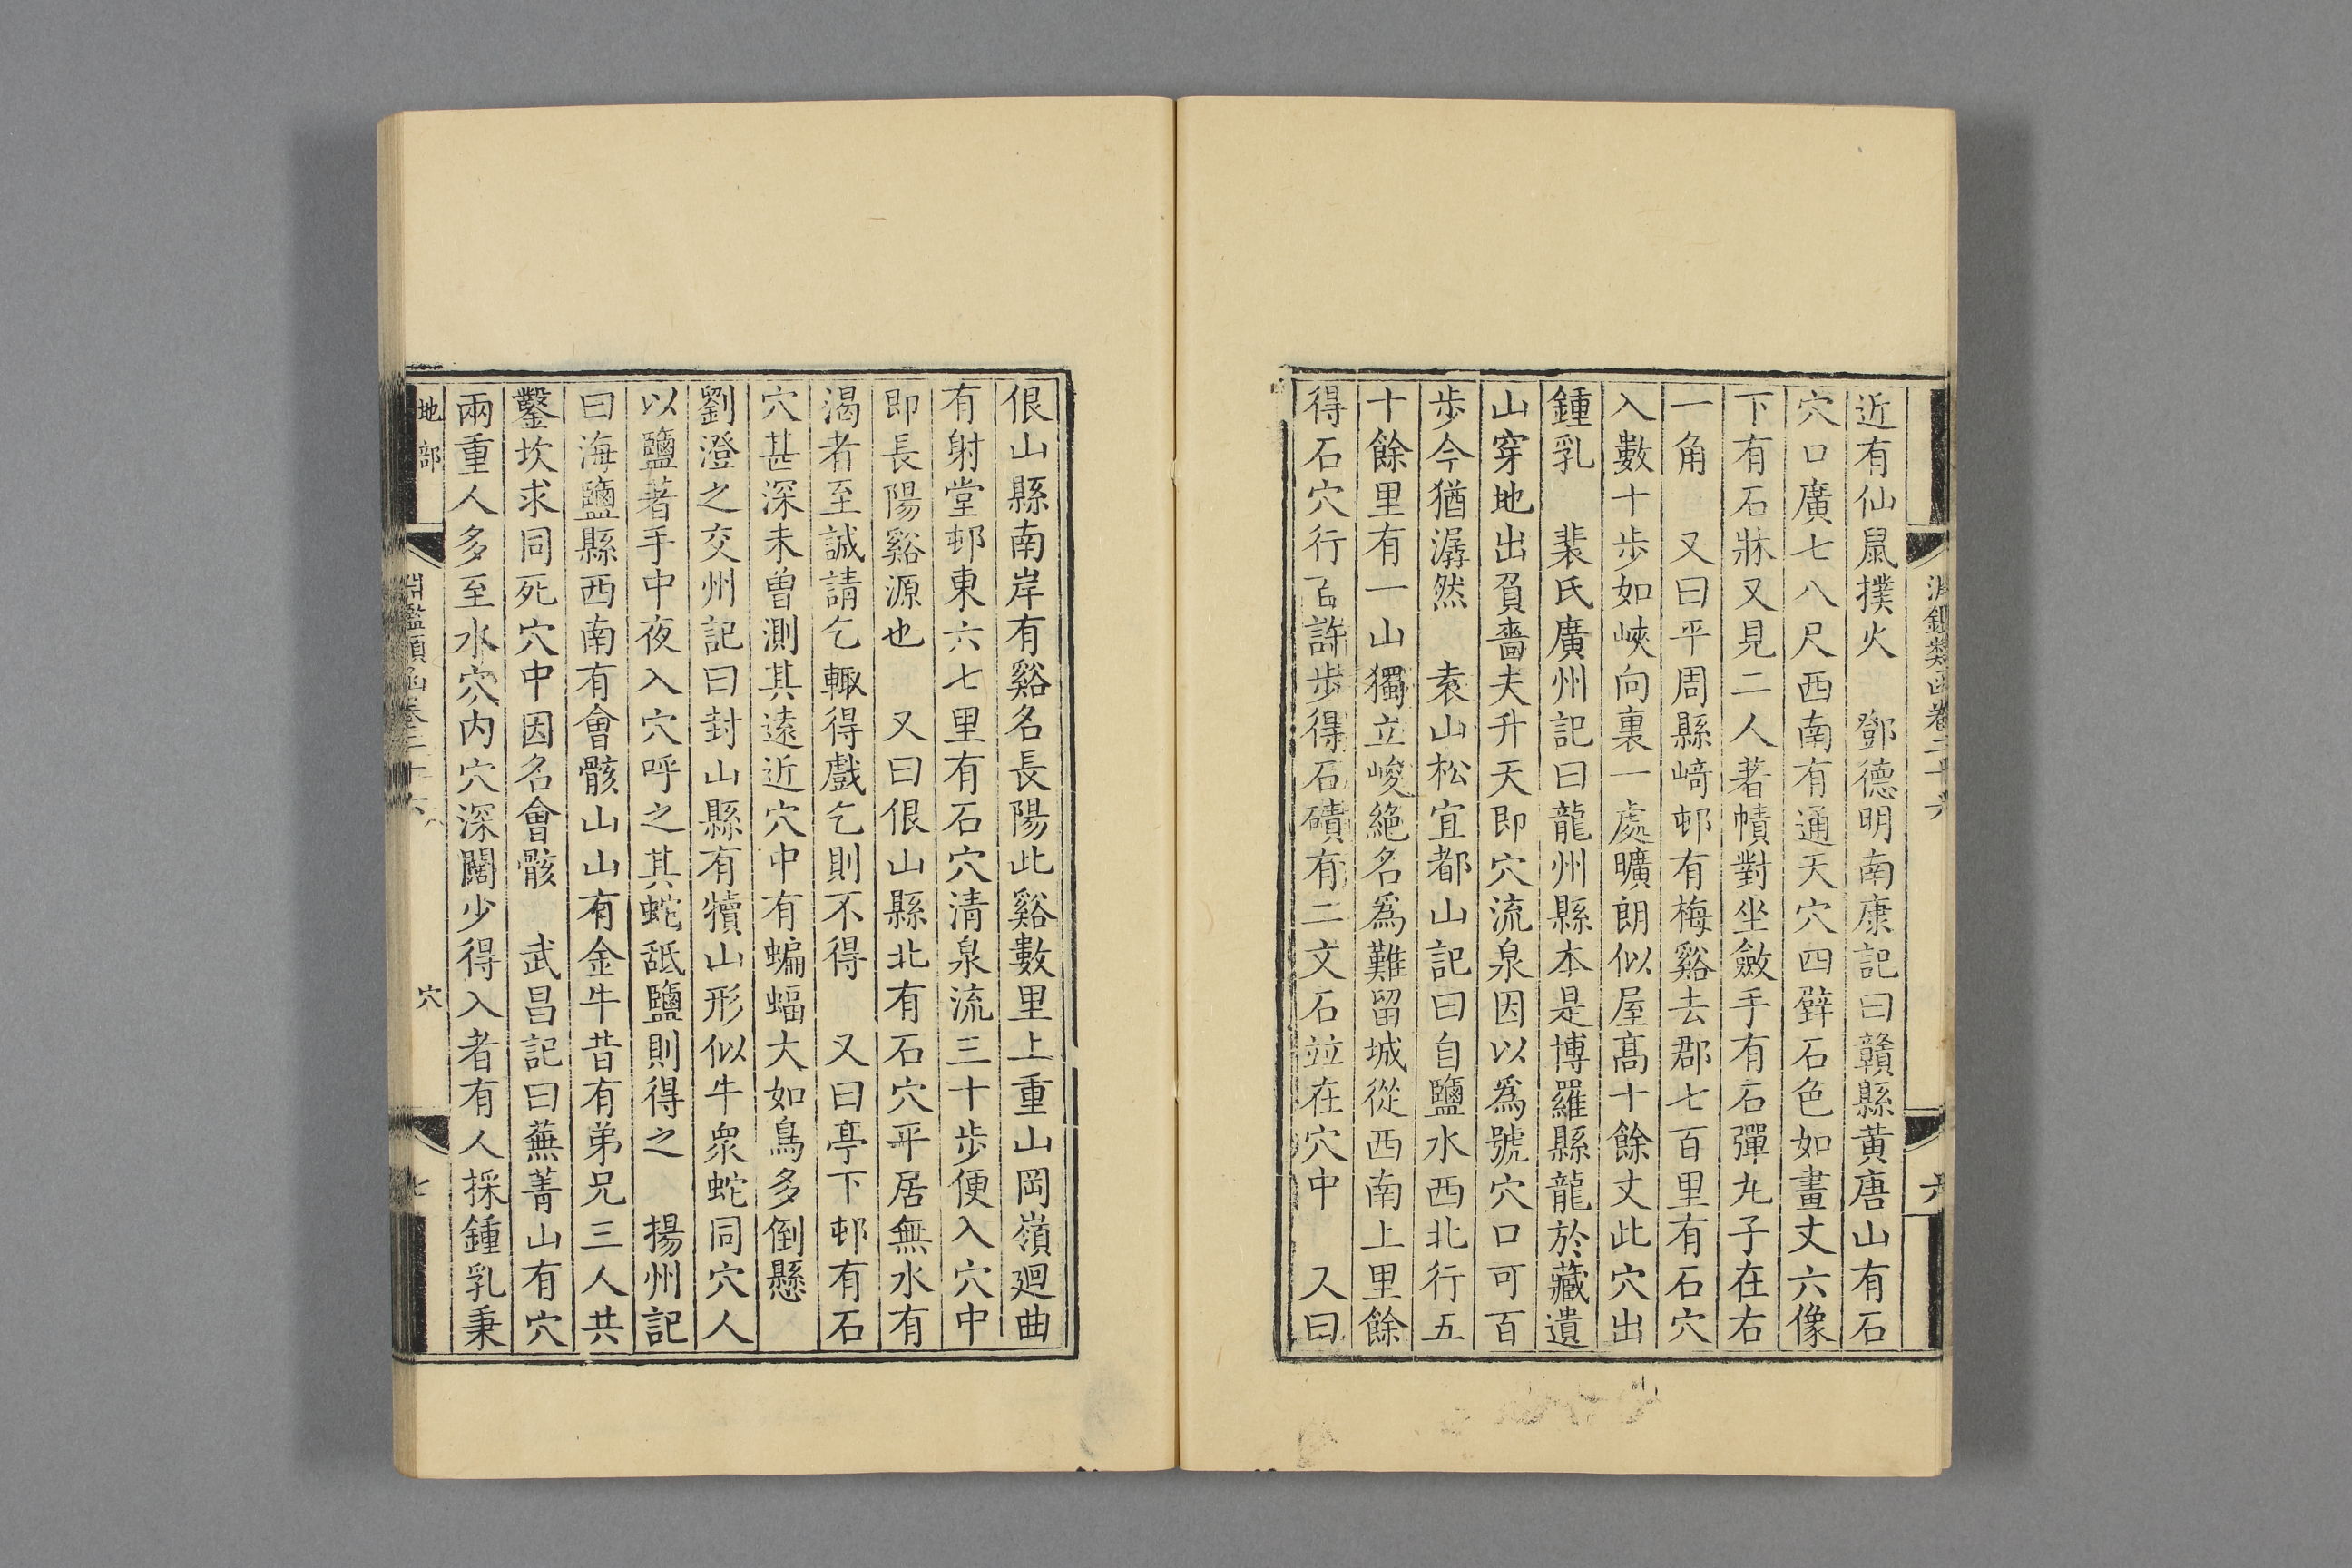 淵鑑類函卷二十六
六
近有仙鼠撲火　鄧德明南康記曰贛縣黃唐山有石
穴口廣七八尺西南有通天穴四壁石色如畫丈六像
下有石牀又見二人著幘對坐斂手有石彈丸子在右
一角　又曰平周縣﨑邨有梅谿去郡七百里有石穴
入數十步如峽向裏一處曠朗似屋高十餘丈此穴出
鍾乳　裴氏廣州記曰龍州縣本是博羅縣龍於藏遺
山穿地出負嗇夫升天即穴流泉因以爲號穴口可百
步今猶潺然　袁山松宜都山記曰自鹽水西北行五
十餘里有一山獨立峻絕名爲難留城從西南上里餘
得石穴行百許步得石磧有二文石竝在穴中　又曰
佷山縣南岸有谿名長陽此谿數里上重山岡嶺迴曲
有射堂邨東六七里有石穴清泉流三十步便入穴中
即長陽谿源也　又曰佷山縣北有石穴平居無水有
渴者至誠請乞輙得戲乞則不得　又曰亭下邨有石
穴甚深未曾測其遠近穴中有蝙蝠大如鳥多倒懸
劉澄之交州記曰封山縣有犢山形似牛衆蛇同穴人
以鹽著手中夜入穴呼之其蛇舐鹽則得之　揚州記
曰海鹽縣西南有會骸山山有金牛昔有弟兄三人共
鑿坎求同死穴中因名會骸　武昌記曰蕪菁山有穴
兩重人多至水穴內穴深闊少得入者有人採鍾乳秉
地部
淵鑑類函卷二十六
穴
七